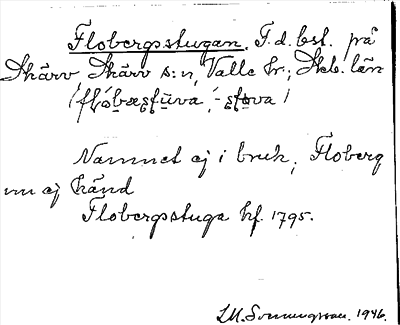 Flobergsstugan. F.d. bst. på
Skärv, Skärv s:n, Valle hr; Skb. län
Namnet ej i bruk, Floberg
nu ej känd
Flobergsstuga hf. 1795.
1946.